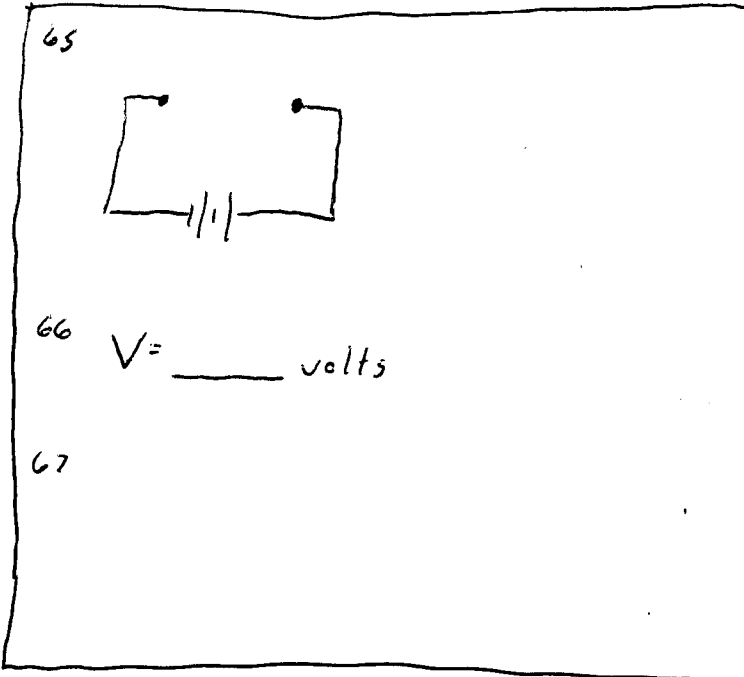 65
66 V= ____ volts
67